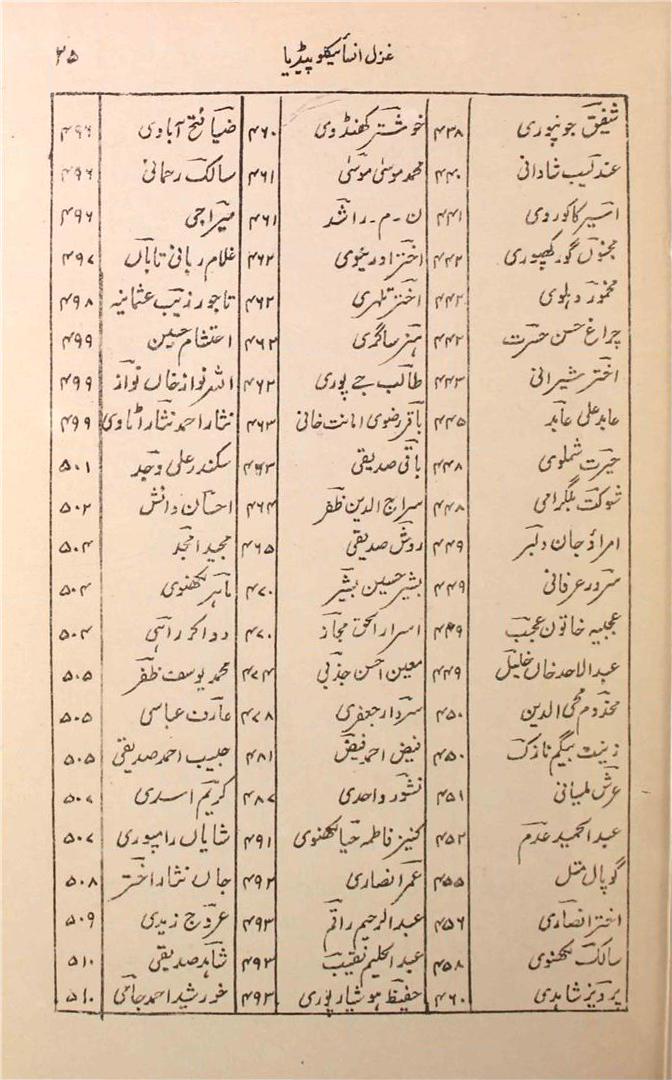 غزل انسائیکلوپیڈیا ۲۵
شفیق جونپوری ۴۳۸ خوشتر کھنڈوی ۴۶۰ ضیا فتح آبادی ۴۹۶
عندلیب شادانی ۴۴۰ محمد موسیٰ موسیٰ ۴۶۱ سالک رحمانی ۴۹۶
اسیر کاکوروی ۴۴۱ ن - م - راشد ۴۶۱ میراجی ۴۹۶
مجنوں گورکھپوری ۴۴۲ اختر اورینوی ۴۶۲ غلام ربانی تاباں ۴۹۷
مخمور دہلوی ۴۴۲ اختر تلہری ۴۶۲ تاجور زیب عثمانیہ ۴۹۸
چراغ حسن حسرت ۴۴۲ ہنر ساگری ۴۶۲ احتشام حسین ۴۹۹
اختر شیرانی ۴۴۳ طالب جے پوری ۴۶۲ اللہ نواز خاں نواز ۴۹۹
عابد علی عابد ۴۴۵ باقر رضوی امانت خانی ۴۶۳ نثار احمد نثار اٹاوی ۴۹۹
حیرت شملوی ۴۴۸ باقی صدیقی ۴۶۳ سکندر علی وجد ۵۰۱
شوکت بلگرامی ۴۴۸ سراج الدین ظفر ۴۶۴ احسان دانش ۵۰۲
امراؤ جان دلبر ۴۴۹ روش صدیقی ۴۶۵ مجید امجد ۵۰۴
سرور عرفانی ۴۴۹ بشیر حسین بشیر ۴۷۰ ماہر لکھنوی ۵۰۴
عجیبہ خاتون عجیب ۴۴۹ اسرار الحق مجاز ۴۷۰ دواکر راہی ۵۰۴
عبد الاحد خاں خلیل ۴۴۹ معین احسن جذبی ۴۷۴ محمد یوسف ظفر ۵۰۵
مخدوم محی الدین ۴۵۰ سردار جعفری ۴۷۸ عارف عباسی ۵۰۵
زینت بیگم نازک ۴۵۰ فیض احمد فیض ۴۸۱ حبیب احمد صدیقی ۵۰۵
عرش ملسیانی ۴۵۱ نشور واحدی ۴۸۷ کریم اسدی ۵۰۷
عبد الحمید عدم ۴۵۲ کنیز فاطمہ حیا لکھنوی ۴۹۱ شایاں رامپوری ۵۰۷
گوپال متل ۴۵۵ عمر انصاری ۴۹۲ جاں نثار اختر ۵۰۸
اختر انصاری ۴۵۶ عبد الرحیم راقم ۴۹۳ عروج زیدی ۵۰۹
سالک لکھنوی ۴۵۸ عبد الحلیم نقیب ۴۹۳ شاہد صدیقی ۵۱۰
پرویز شاہدی ۴۶۰ حفیظ ہوشیارپوری ۴۹۳ خورشید احمد جامی ۵۱۰